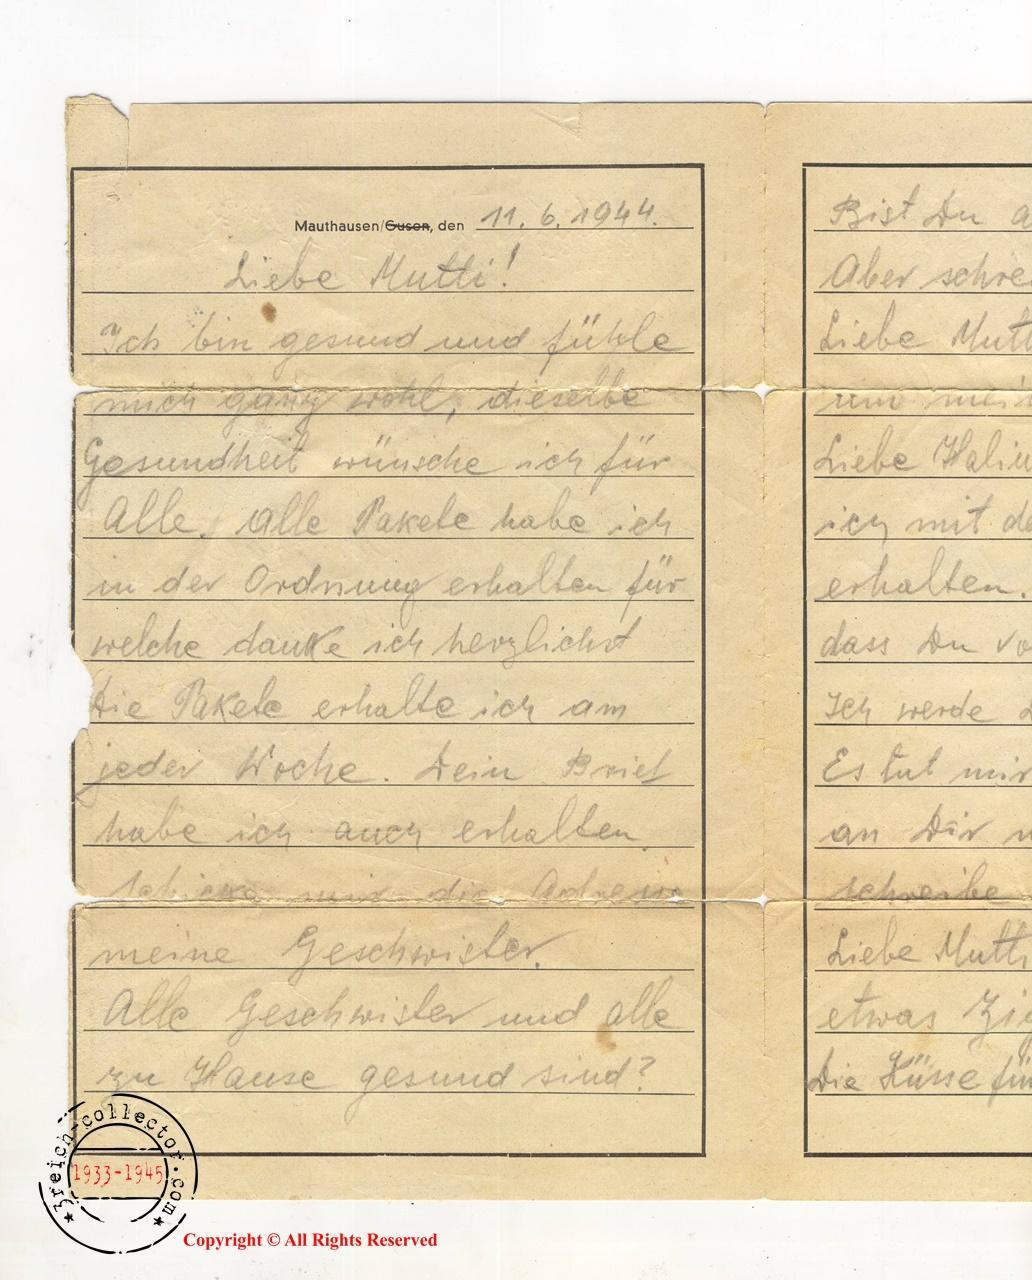 Mauthausen/Gusen, den 11. 6. 1944.
Liebe Mutti!
Ich bin gesund und fühle
mich ganz wohl, dieselbe
Gesundheit wünsche ich für
Alle, alle Pakete habe ich
in der Ordnung erhalten für
welche danke ich herzlichst
die Pakete erhalte ich am
jeder Woche. Dein Brief
habe ich auch erhalten.
Schicke mir die Adresse
meine Geschwister.
Alle Geschwister und alle
zu Hause gesund sind?
Bist Du a
Aber schre
Liebe Mutt
um mein
Liebe Halin
ich mit de
erhalten.
dass Du vo
Ich werde
Es tut mir
an Dir
schreibe
Liebe Mutti
etwas Zig
Die Küsse für
3reich-collector.com
1933-1945
Copyright © All Rights Reserved